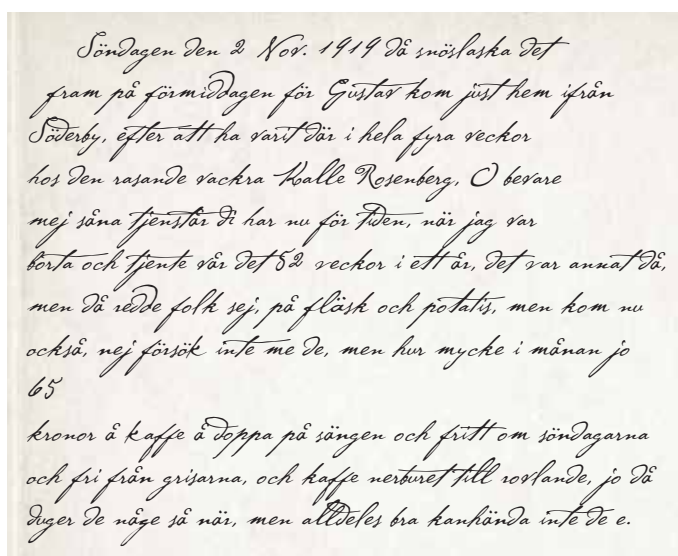 Söndagen den 2 Nov. 1919 då snöslaska det
fram på förmiddagen för Gustav kom just hem ifrån
Söderby, efter att ha varit där i hela fyra veckor
hos den rasande vackra Kalle Rosenberg, O bevare
mej såna tjenstår di har nu för tiden, när jag var
borta och tjente vår det 52 veckor i ett år, det var annat då,
men då redde folk sej, på fläsk och potatis, men kom nu
också, nej försök inte me de, men hur mycke i månan jo
65
kronor å kaffe å doppa på sängen och fritt om söndagarna
och fri från grisarna, och kaffe nerburet till rovlande, jo då
duger de någe så när, men alldeles bra kanhända inte de e.